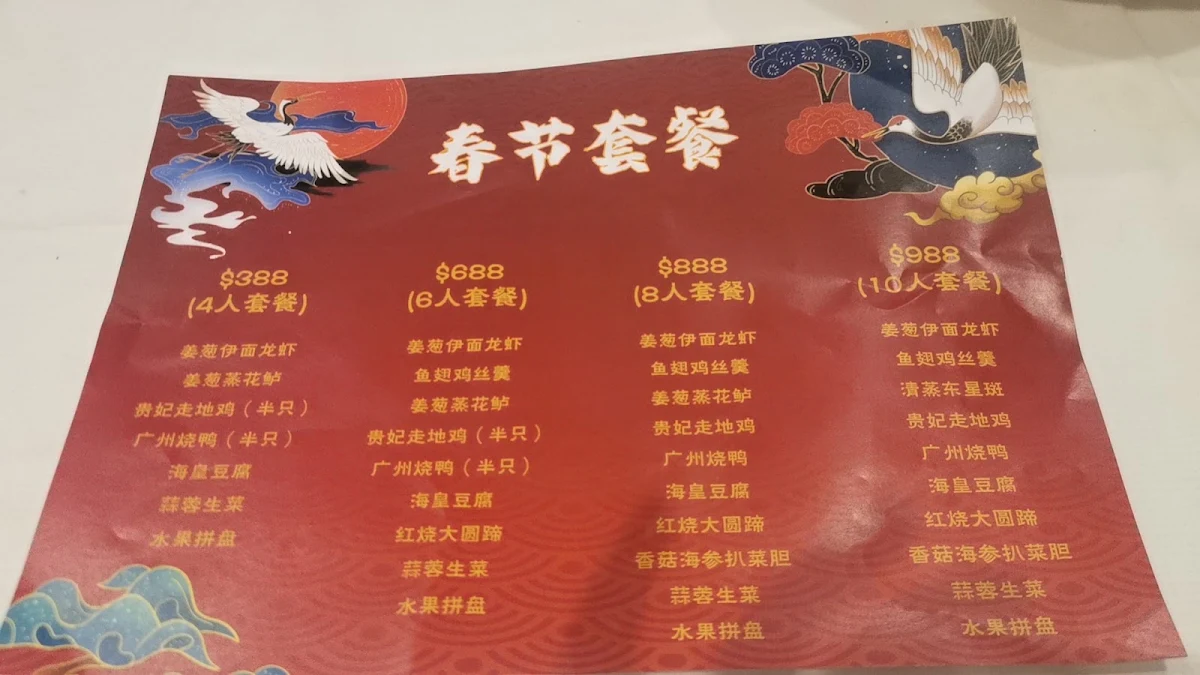 春节套餐
$388
(4人套餐)
姜葱伊面龙虾
姜葱蒸花鲈
贵妃走地鸡(半只)
广州烧鸭(半只)
海皇豆腐
蒜蓉生菜
水果拼盘
$688
(6人套餐)
姜葱伊面龙虾
鱼翅鸡丝羹
姜葱蒸花鲈
贵妃走地鸡(半只)
广州烧鸭(半只)
海皇豆腐
红烧大圆蹄
蒜蓉生菜
水果拼盘
$888
(8人套餐)
姜葱伊面龙虾
鱼翅鸡丝羹
姜葱蒸花鲈
贵妃走地鸡
广州烧鸭
海皇豆腐
红烧大圆蹄
香菇海参扒菜胆
蒜蓉生菜
水果拼盘
$988
(10人套餐)
姜葱伊面龙虾
鱼翅鸡丝羹
清蒸东星斑
贵妃走地鸡
广州烧鸭
海皇豆腐
红烧大圆蹄
香菇海参扒菜胆
蒜蓉生菜
水果拼盘